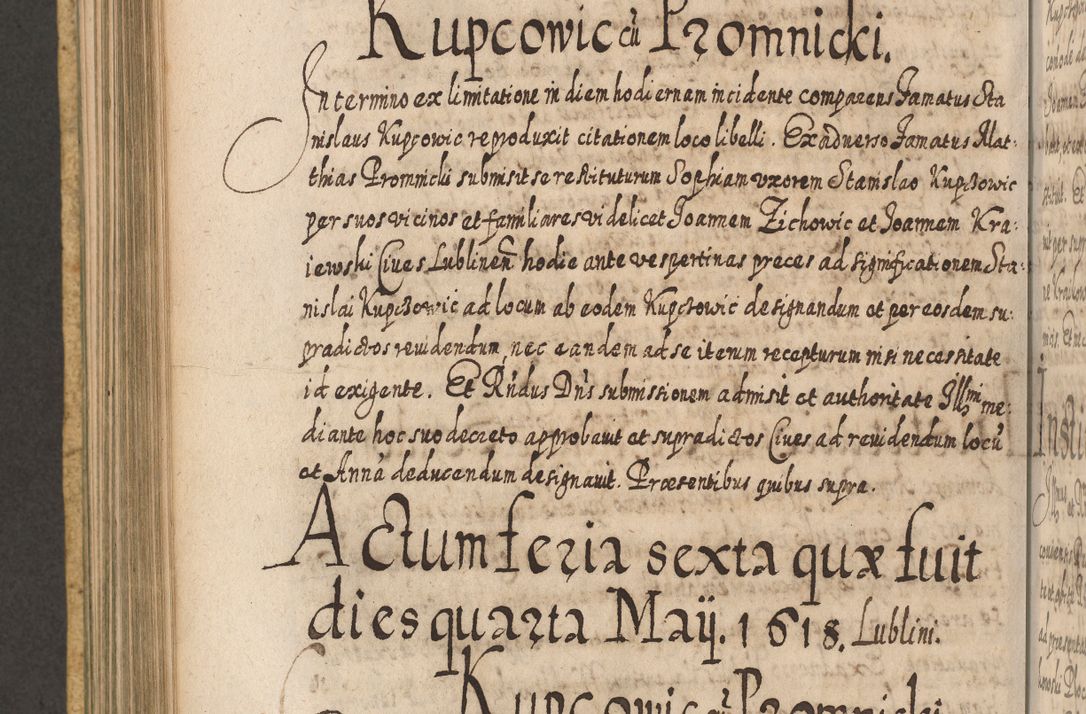 Kupcowic cũ Promnicki.
In termino ex limitatione in diem hodiernam incidente comparens Famatus Sta
nislaus Kupcowic reproduxit citationem loco libelli. Ex adverso Famatus Mat-
thias Promnicki submisit se restituturum Sophiam uxorem Stanislao Kupczowic
per suos vicinos et familiares videlicet Joannem Zichowic et Joannem Kra-
iewski Cives Lublinen̄ hodie ante vespertinas preces ad significationem Sta-
nislai Kupczowic ad locum ab eodem Kupczowic designandum et per eosdem su-
pradictos revidendum, nec eandem ad se iterum recepturum nisi necessitate
id exigente. Et Rńdus Dńs submissionem admisit et authoritate Illmi me-
diante hoc suo decreto approbavit et supradictos Cives ad revidendum locū
et Annã deducendum designavit. Præsentibus quibus supra.
Actum feria sexta quæ fuit
dies quarta Maij. 1618. Lublini.
Kupcowic cũ Promnicki